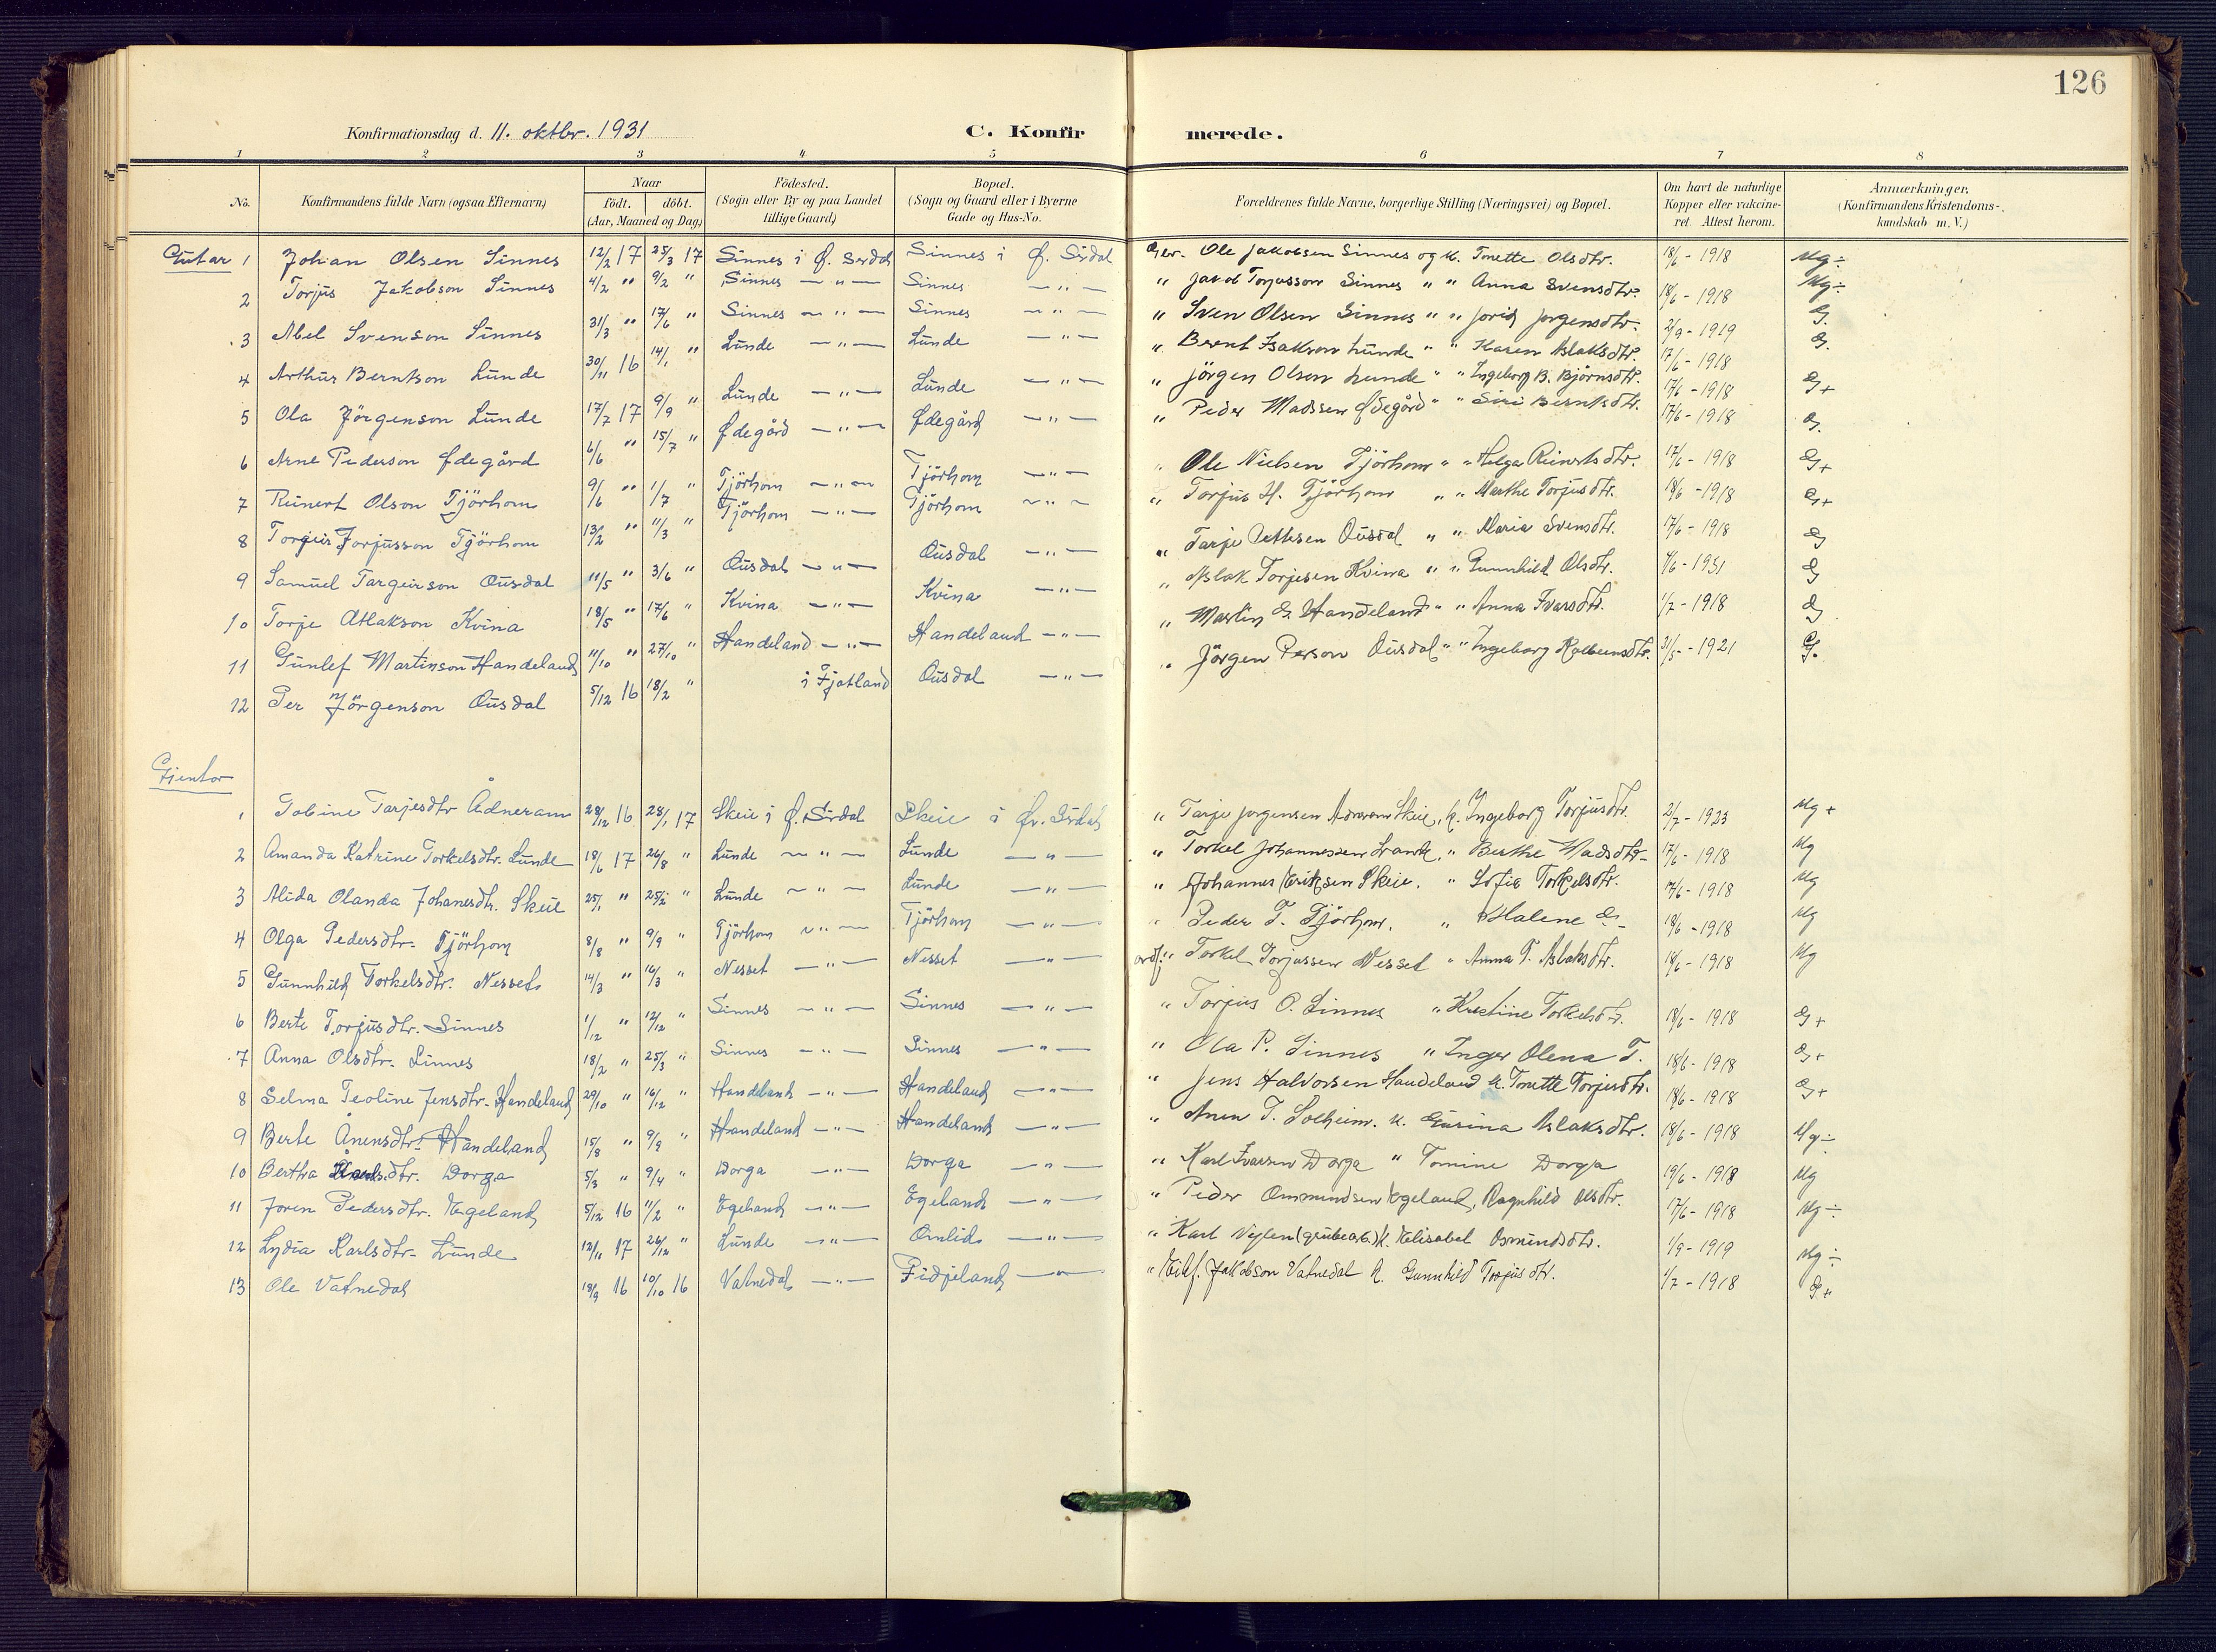 126
Konfirmationsdag d. 11. oktbr. 1931 C. Konfirmerede.
1 2 3 4 5 6 7 8
No. Konfirmandens fulde Navn (ogsaa Efternavn) Naar født. døbt. (Aar, Maaned og Dag) Födested. (Sogn eller By og paa Landet tillige Gaard) Bopæl. (Sogn og Gaard eller i Byerne Gade og Hus-No. Forældrenes fulde Navne, borgerlige Stilling (Næringsvei) og Bopæl. Om havt de naturlige Kopper eller vakcineret. Attest herom. Anmærkninger. (Konfirmandens Kristendomskundskab m. V.)
Gutar 1 Johan Olsen Sinnes 12/2 17 25/3 17 Sinnes i Ø. Sirdal Sinnes i Ø. Sirdal Ole Jakobsen Sinnes og k. Tonette Olsdtr. 18/6 - 1918 Mg ÷
2 Torjus Jakobson Sinnes 4/2 " 9/2 " Sinnes — " — Sinnes — " — " Jakob Torjusson Sinnes " " Anna Svensdtr. 18/6 - 1918 Mg ÷
3 Abel Svenson Sinnes 31/3 " 17/6 " Sinnes — " — Sinnes — " — " Sven Olsen Sinnes " " Jorid Jørgensdtr. 2/9 - 1919 G.
4 Arthur Berntson Lunde 30/11 16 14/1 " Lunde — " — Lunde — " — " Bernt Isakson Lunde " " Karen Aslaksdtr. 17/6 - 1918 G.
5 Ola Jörgenson Lunde 17/7 17 9/9 " Lunde — " — Lunde — " — " Jörgen Olsen Lunde " " Ingeborg B. Björnsdtr. 17/6 - 1918 G+
6 Arne Pederson Ødegård 6/6 " 15/7 " Ødegård — " — Ødegård — " — " Peder Madssen Ødegård " " Siri Berntsdtr. 17/6 - 1918 G.
7 Reinert Olson Tjörhom 9/6 " 1/7 " Tjörhom — " — Tjörhom — " — " Ole Nielsen Tjörhom " " Helga Reinertsdtr. 17/6 - 1918 G+
8 Torgeir Torjusson Tjörhom 13/2 " 11/3 " Tjörhom — " — Tjörhom — " — " Torjus H. Tjörhom " " Marthe Torjusdtr. 18/6 - 1918 G+
9 Samuel Targeirson Ousdal 11/5 " 3/6 " Ousdal — " — Ousdal — " — " Tarje Ousdal " " Maria Svensdtr. 17/6 - 1918 G
10 Torje Atlakson Kvina 18/5 " 17/6 " Kvina — " — Kvina — " — " Aslak Torjesen Kvina " " Gunnhild Olsdtr. 4/6 - 1931 G
11 Gunlef Martinson Handeland 11/10 " 27/10 " Handeland — " — Handeland — " — " Martin G. Handeland " " Anna Ivarsdtr. 1/7 - 1918 G
12 Per Jörgenson Ousdal 5/12 16 18/2 " i Fjotland Ousdal — " — " Jörgen Person Ousdal " " Ingeborg Kolbeinsdtr. 31/5 - 1921 G.
Gjentor
1 Tobine Tarjesdtr Ådneram 28/12 16 28/1 17 Skeie i Ø. Sirdal Skeie i Øv. Sirdal " Tarje Jørgensen Skeie, k. Ingeborg Torjusdtr. 2/7 - 1923 Mg +
2 Amanda Katrine Torkelsdtr. Lunde 18/6 17 26/8 " Lunde — " — Lunde — " — " Torkel Johannessen " Berthe Madsdtr. 17/6 - 1918 Mg
3 Alida Olanda Johanesdtr. Skeie 25/1 " 25/2 " Lunde — " — Lunde — " — " Johannes Eriksen Skeie. " Sofie Torkelsdtr. 17/6 - 1918 Mg
4 Olga Pedersdtr. Tjörhom 8/8 " 9/9 " Tjörhom — " — Tjörhom — " — " Peder T. Tjörhom. " Malene 18/6 - 1918 Mg
5 Gunnhild Torkelsdtr. Nesset 14/3 " 16/3 " Nesset — " — Nesset — " — " Torkel Torjussen Nesset " Anna T. Aslaksdtr. 18/6 - 1918 Mg
6 Berte Torjusdtr. Sinnes 1/12 " 12/12 " Sinnes — " — Sinnes — " — " Torjus O. Sinnes " Kristine Torkelsdtr. 18/6 - 1918 G+
7 Anna Olsdtr. Sinnes 18/2 " 25/3 " Sinnes — " — Sinnes — " — " Ola P. Sinnes " Inger Olena T. 18/6 - 1918 G+
8 Selma Teoline Jensdtr. Handeland 29/10 " 16/12 " Handeland — " — Handeland — " — " Jens Halvorsen Handeland k. Tonette Torjusdtr. 18/6 - 1918 G+
9 Berte Ånensdtr. Handeland 15/8 " 9/9 " Handeland — " — Handeland — " — " Anen T. Solheim. k. Gurina Aslaksdtr. 18/6 - 1918 Mg ÷
10 Bertha Karlsdtr. Dorga 5/3 " 9/4 " Dorga — " — Dorga — " — " Karl Ivarsen Dorga " Tomine Dorga 19/6 - 1918 Mg
11 Joren Pedersdtr. Egeland 5/12 16 11/2 " Egeland — " — Egeland — " — " Peder Ommundsen Egeland, Ragnhild Olsdtr. 17/6 - 1918 Mg ÷
12 Lydia Karlsdtr. Lunde 12/11 17 26/12 " Lunde — " — Omlid — " — " Karl (grubearb.) k. Elisabet Osmundsdtr. 1/9 - 1919 Mg ÷
13 Ole Vatnedal 19/9 16 10/10 16 Vatnedal — " — Fidjeland — " — " Eilef. Jakobson Vatnedal k. Gunnhild Torjusdtr. 1/7 - 1918 G+